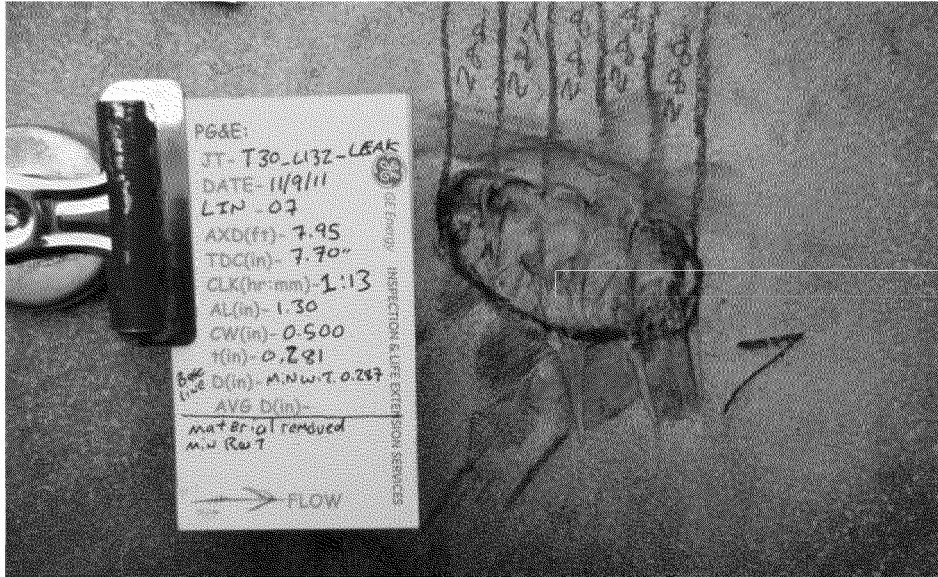 PG&E:
JT- T30_L132-LEAK
DATE- 11/9/11
LIN -07
AXD(ft)- 7.95
TDC(in)- 7.70"
CLK(hr:mm)- 1:13
AL(in)- 1.30
CW(in)- 0.500
t(in)- 0.281
D(in)- M.N.W.T. 0.287
AVG D(in)-
material removed
FLOW
GE Energy
INSPECTION & LIFE EXTENSION SERVICES